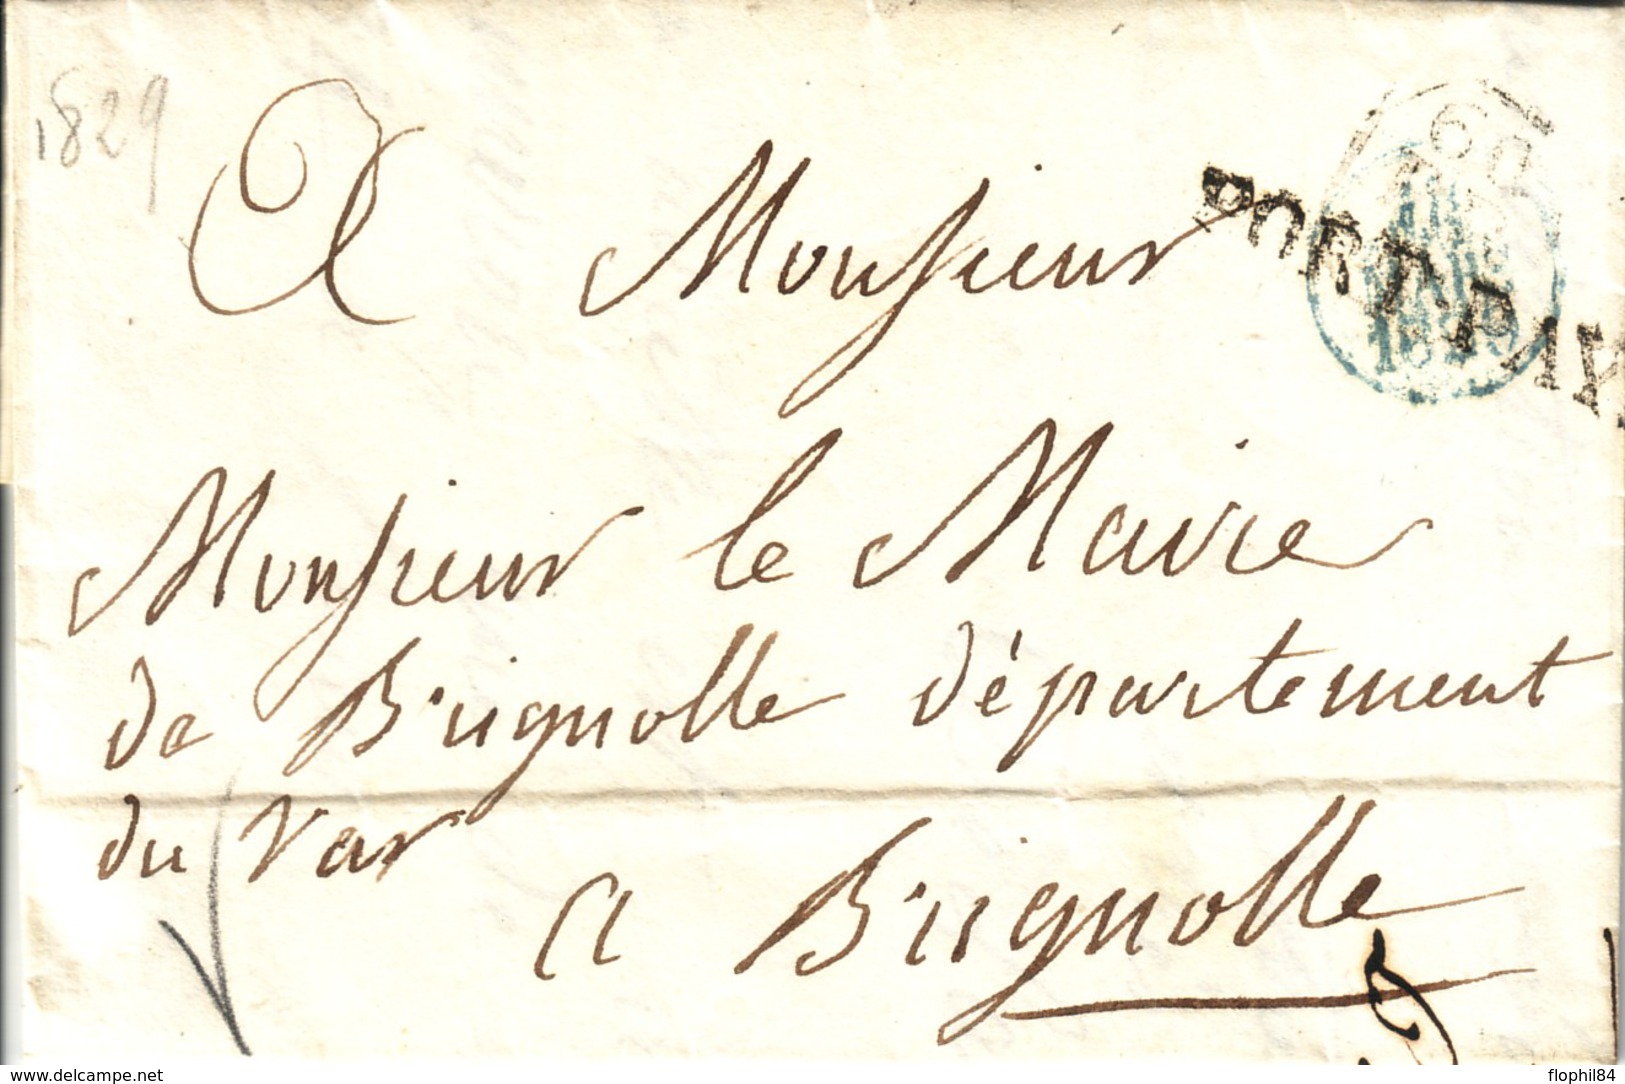 1829
A Monsieur
PORT PAYÉ
60
1829
Monsieur le Maire
de Brignolle département
du Var
a Brignolle
delcampe.net
flophil84